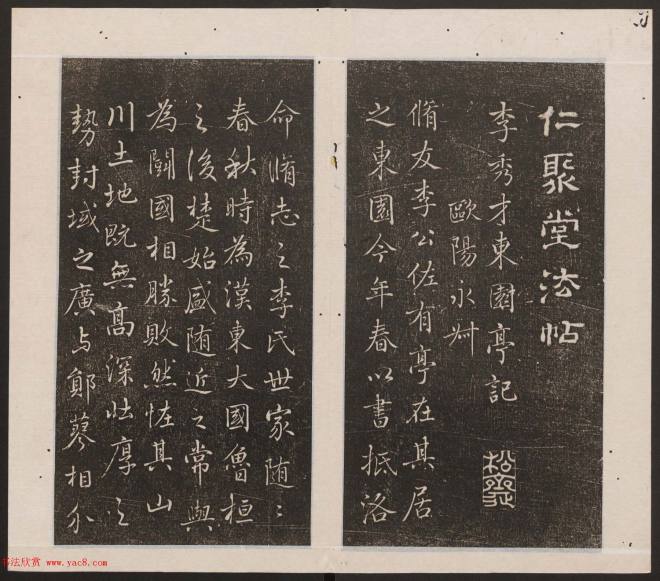 仁聚堂法帖
李秀才東園亭記
松雪
歐陽永叔
脩友李公佐有亭在其居
之東園今年春以書抵洛
命脩志之李氏世家随之
春秋時為漢東大國魯桓
之後楚始盛随近之常與
為鬪國相勝敗然恠其山
川土地既無髙深壯厚之
勢封域之廣与鄖蓼相介
书法欣赏 www.yac8.com